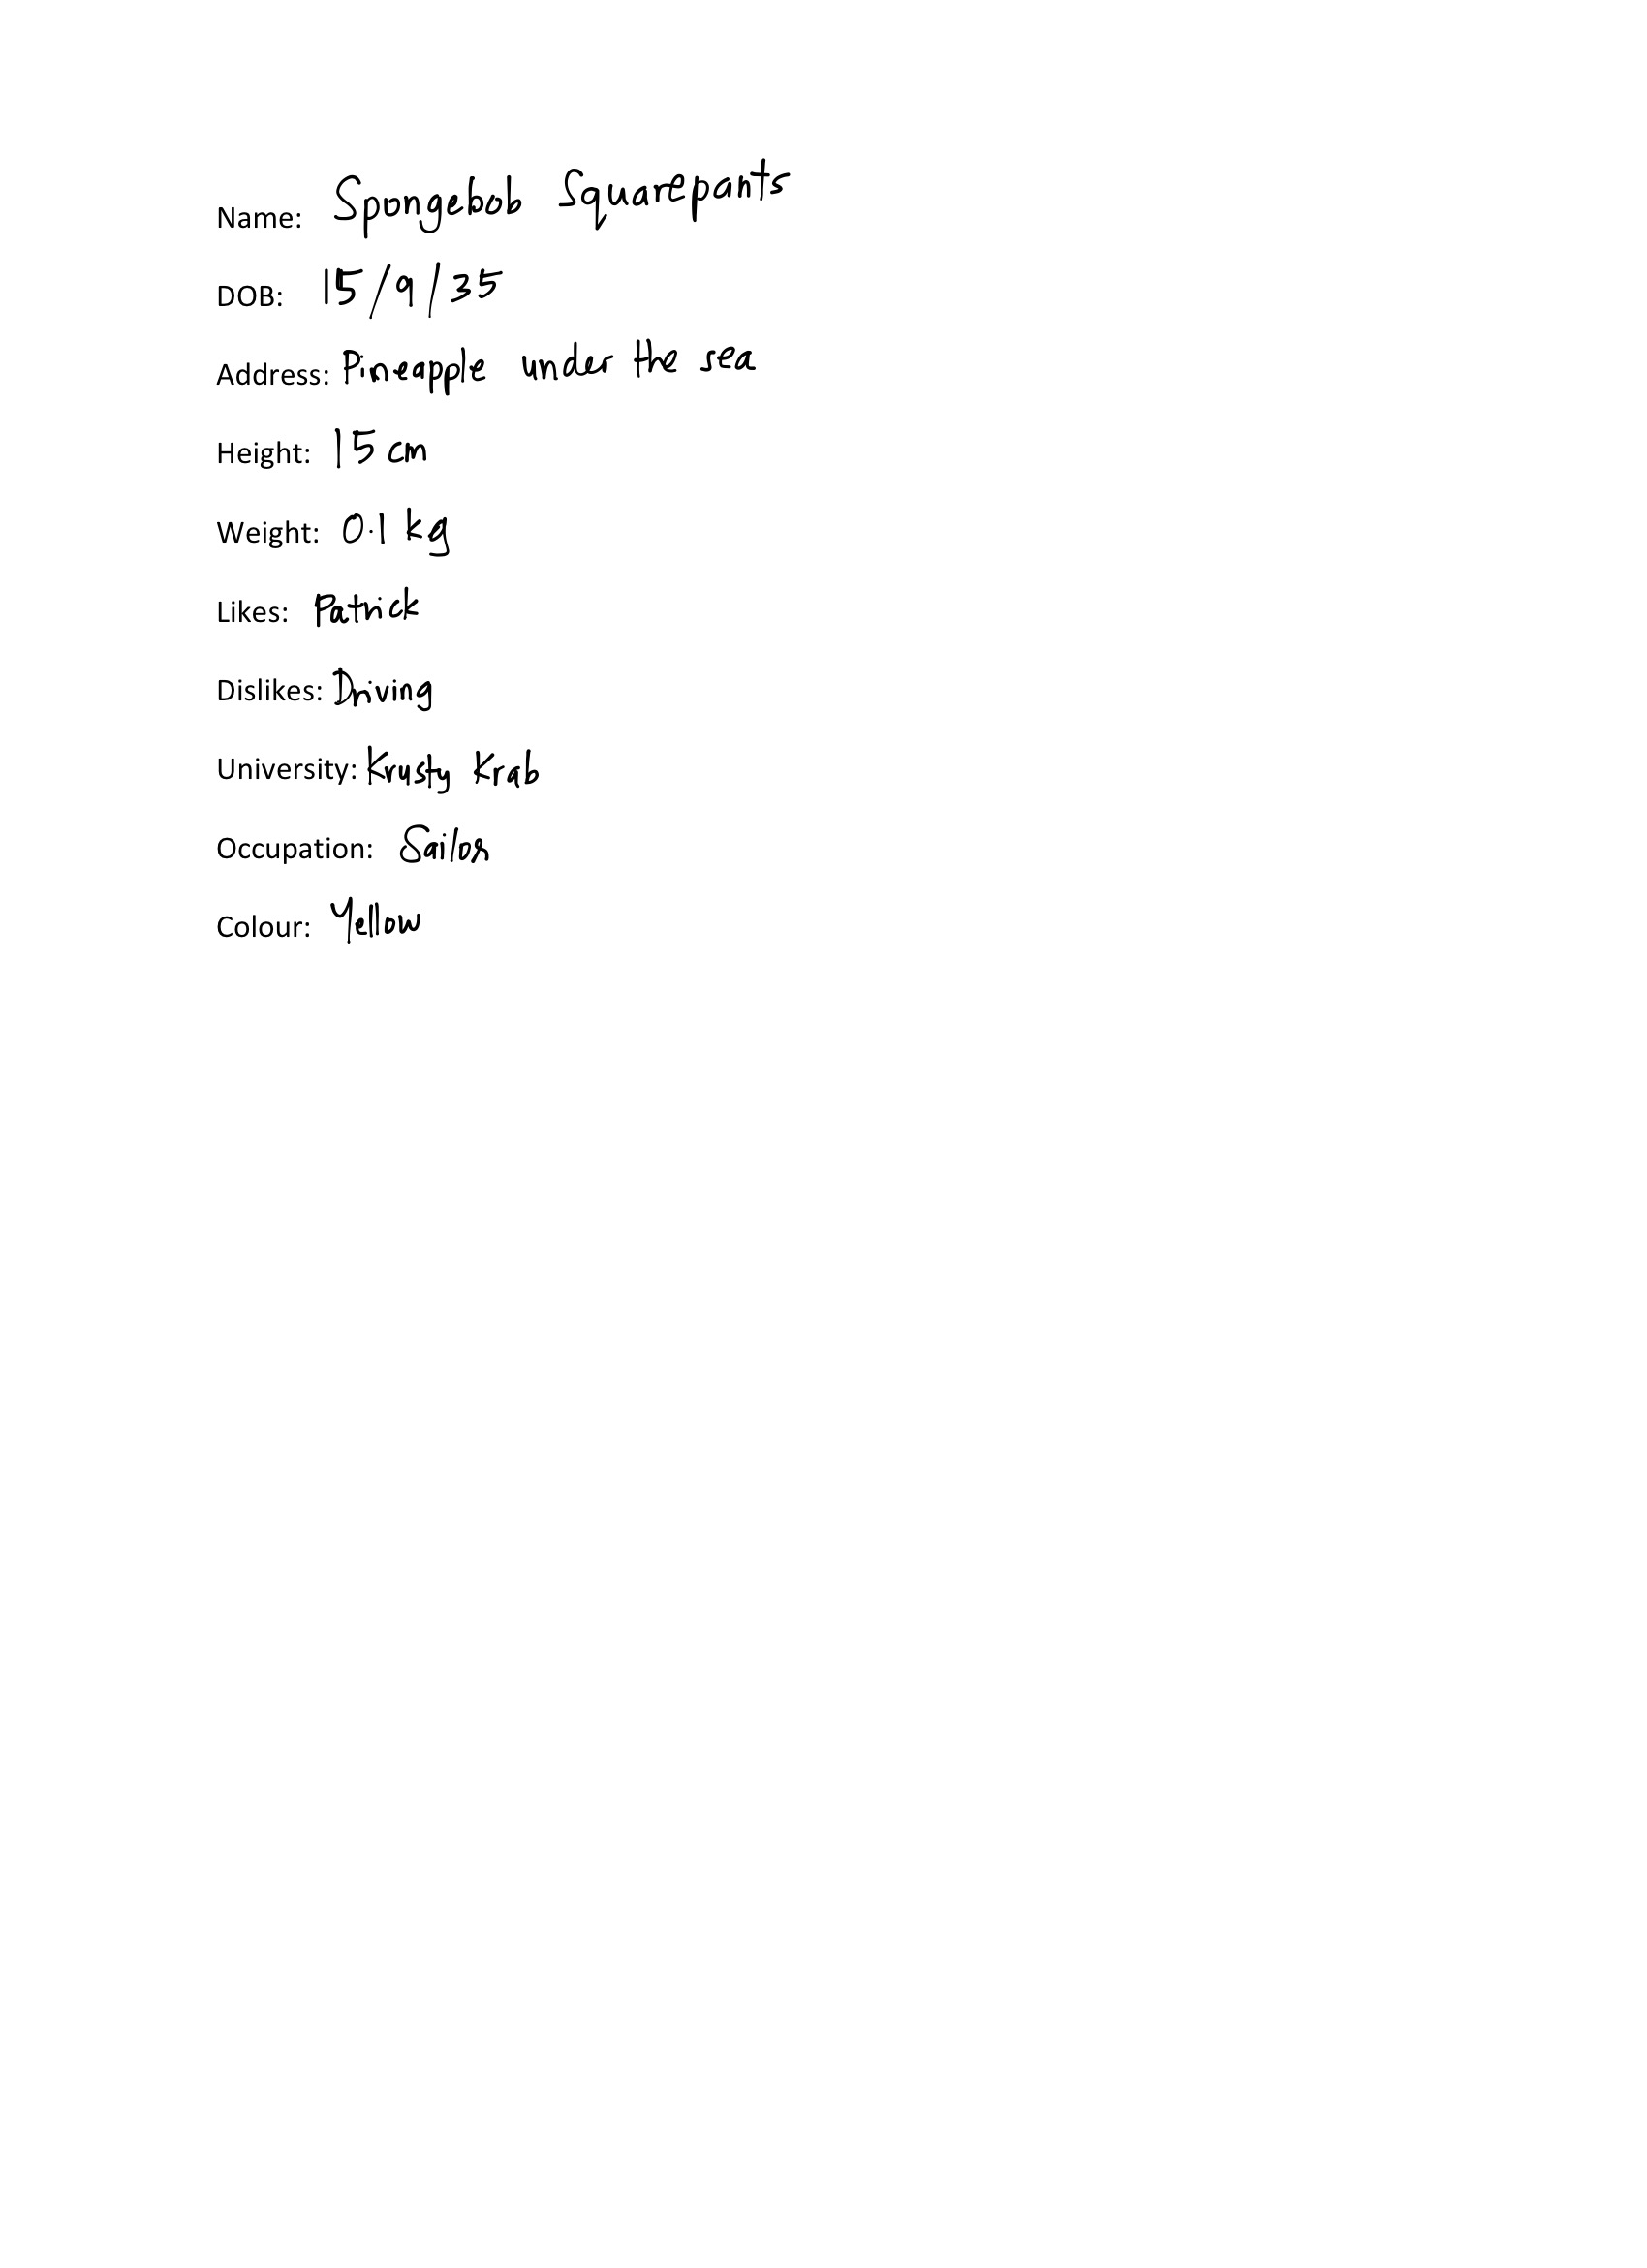 Name: Spongebob Squarepants
DOB: 15/9/35
Address: Pineapple under the sea
Height: 15 cm
Weight: 0.1 kg
Likes: Patrick
Dislikes: Driving
University: Krusty Krab
Occupation: Sailor
Colour: Yellow